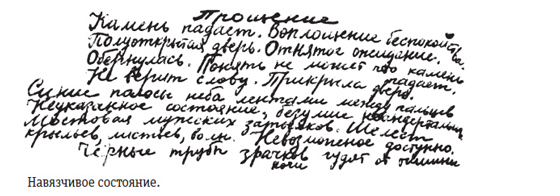 Прощение
Камень падает. Воплощение беспокойства.
Полуоткрытая дверь. Отнятое ожидание.
Обернулась. Понять не может что камень падает.
Не верит слову. Прикрыла дверь.
Синие полосы неба лентами между пальцев
Неуказанное состояние, безумие неандертальца
Мостовая мужских затылков. Шелест
крыльев, листьев, волн. Невозможное доступно.
Чёрные трубы зрачков гудят от тишины
ночи
Навязчивое состояние.